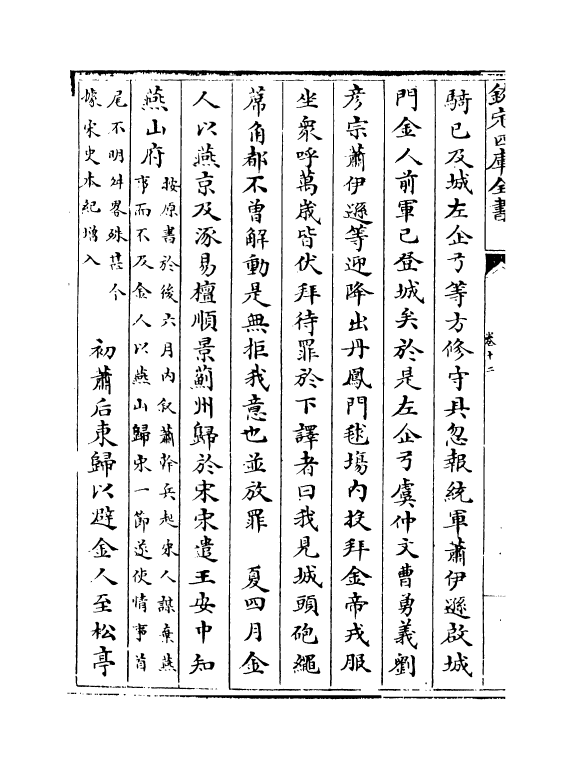 欽定四庫全書
卷十二
騎已及城左企弓等方修守具忽報統軍蕭伊遜啟城
門金人前軍已登城矣於是左企弓虞仲文曹勇義劉
彦宗蕭伊遜等迎降出丹鳳門毬塲内投拜金帝戎服
坐衆呼萬歳皆伏拜待罪於下譯者曰我見城頭砲繩
蓆角都不曽解動是無拒我意也並放罪　夏四月金
人以燕京及涿易檀順景薊州歸於宋宋遣王安中知
燕山府
按原書於後六月内叙蕭幹兵起宋人謀棄燕
事而不及金人以燕山歸宋一節遂使情事首
尾不明舛畧殊甚今
據宋史本紀増入
初蕭后東歸以避金人至松亭